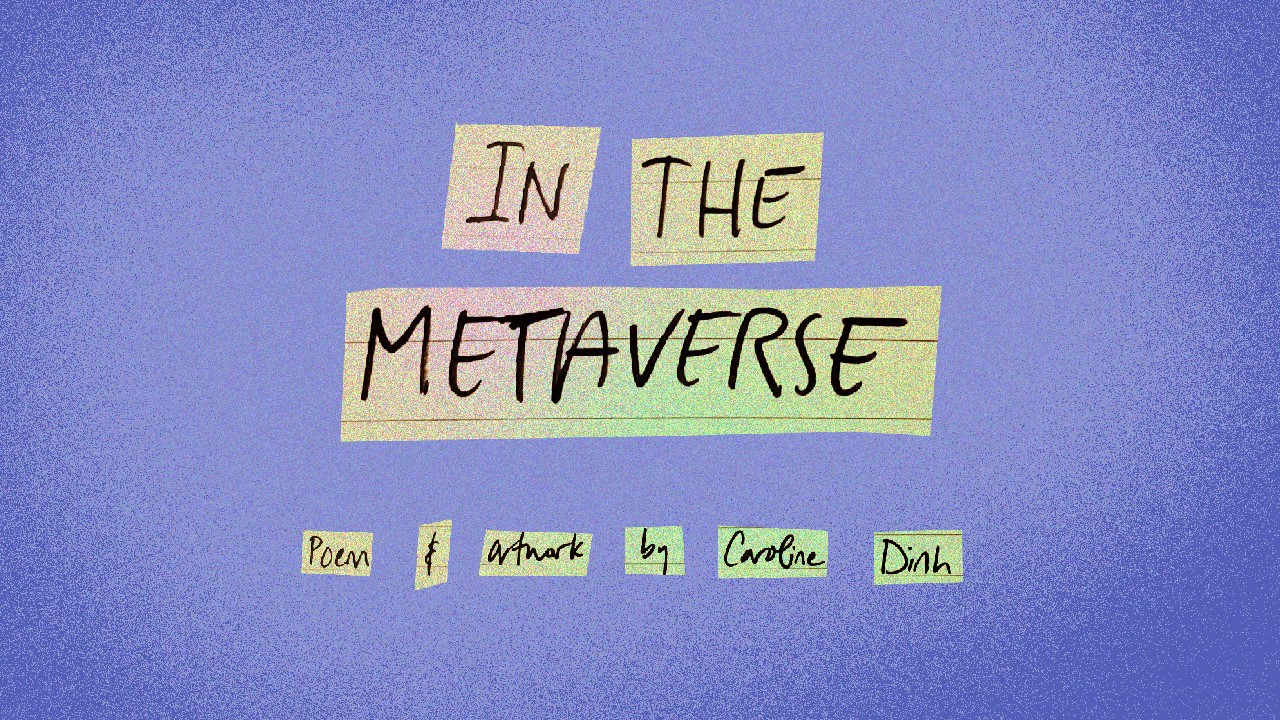 IN THE
METAVERSE
Poem & artwork by Caroline Dinh